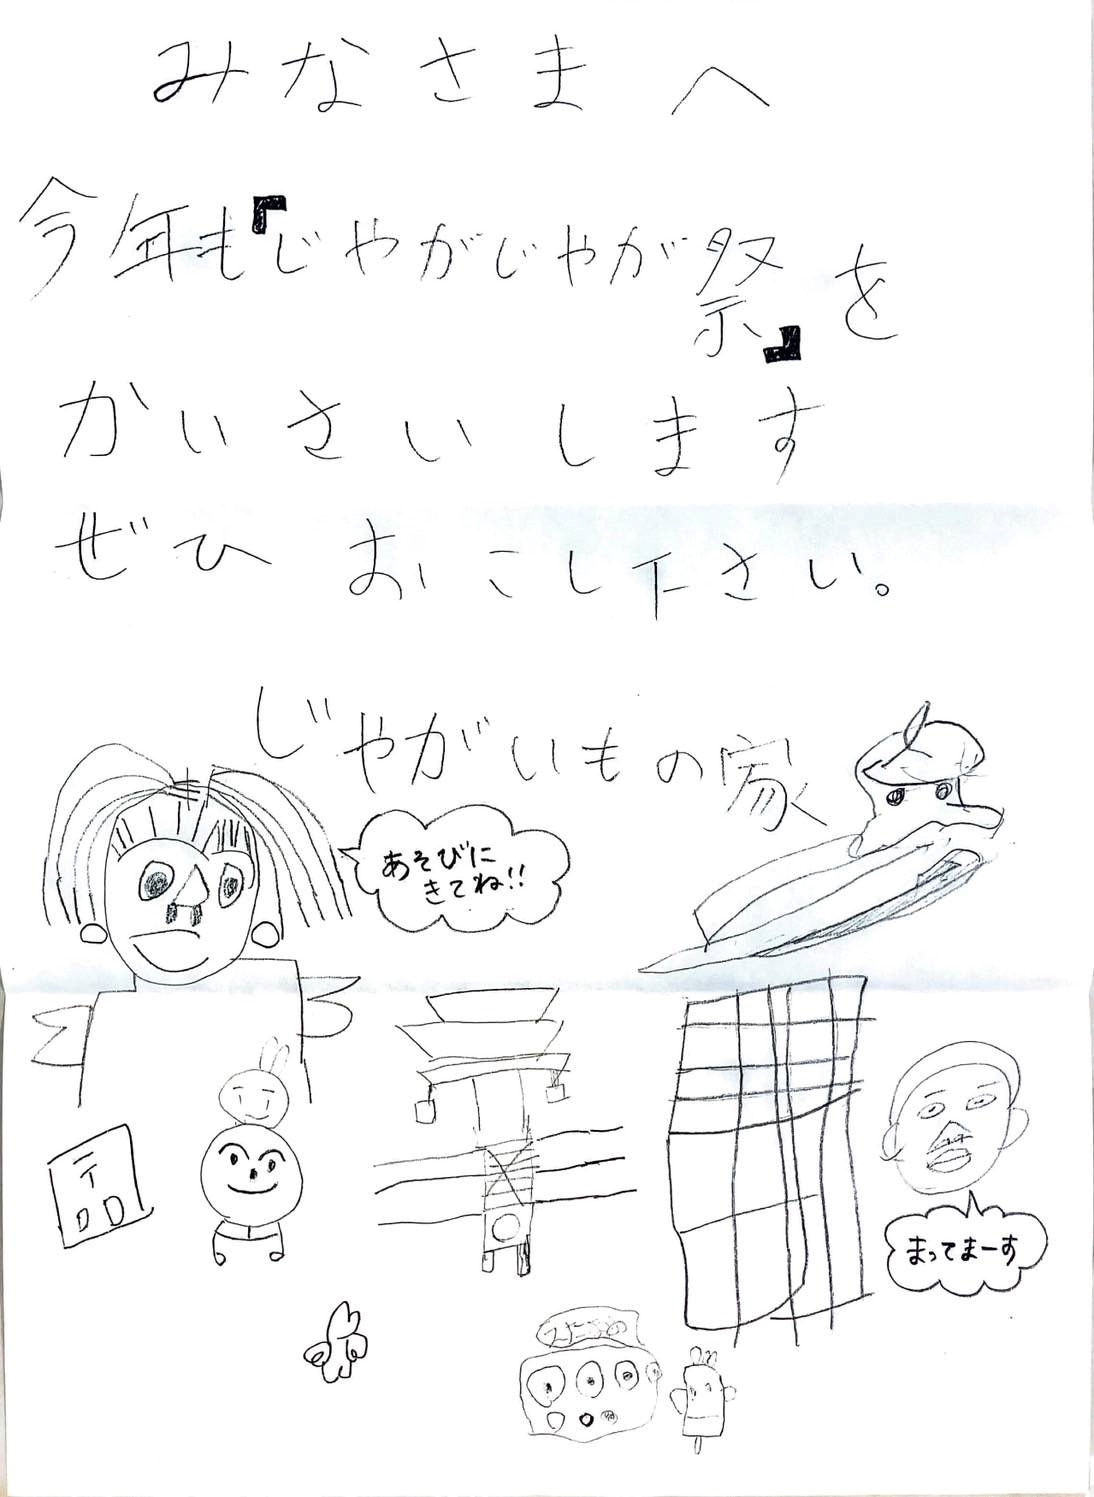 みなさまへ
今年も『じゃがじゃが祭』を
かいさいします
ぜひ おこし下さい。
じゃがいもの家
あそびに
きてね!!
まってまーす